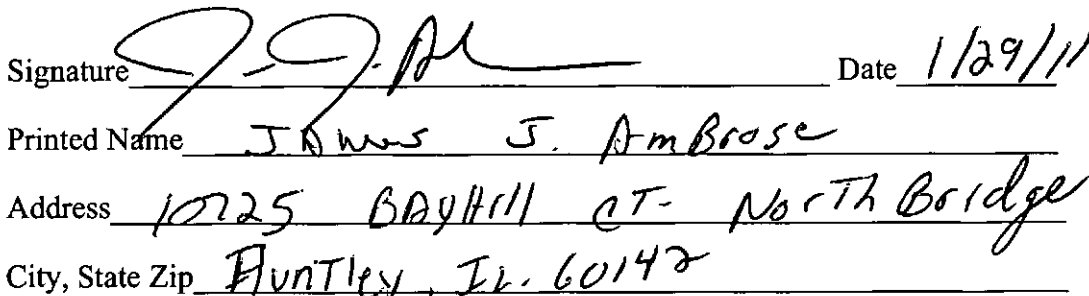 Signature J. J. A Date 1/29/11
Printed Name James J. AmBrose
Address 10725 BAyHill CT. NorTh Bridge
City, State Zip HunTley, IL. 60142